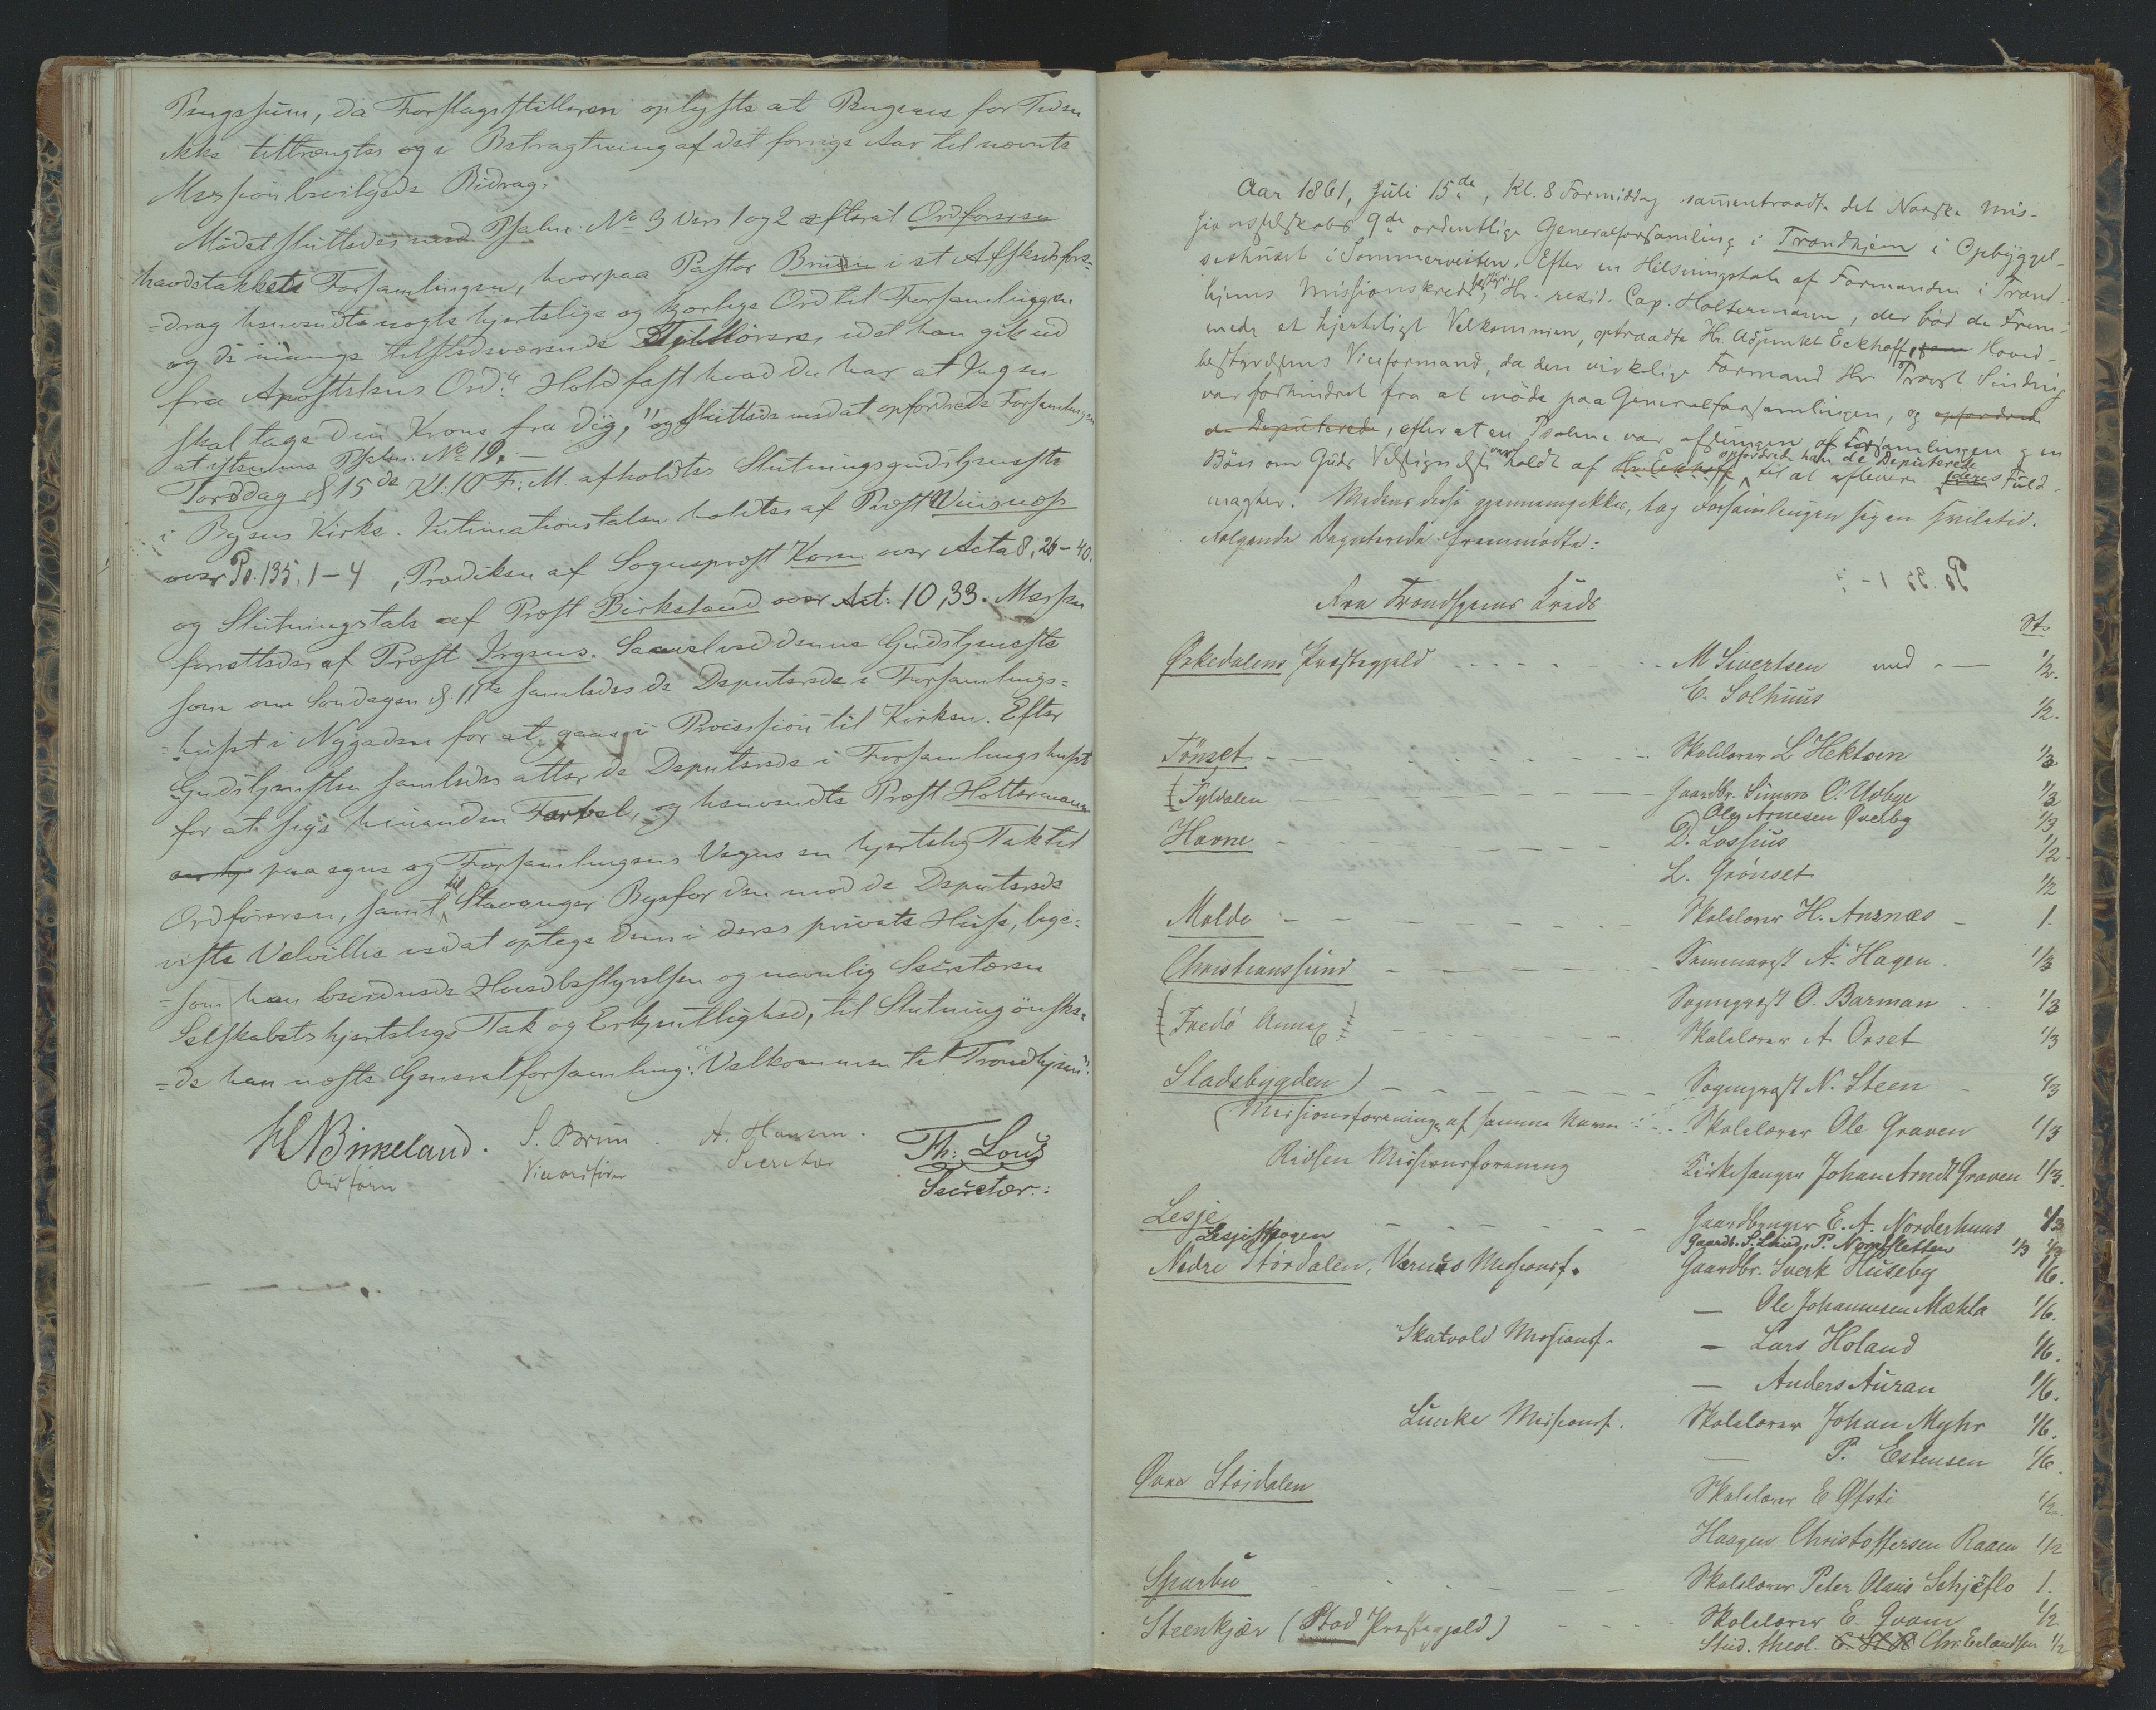 Pengesum, da Forslagsstilleren oplyste at Pengene for Tiden
ikke tiltrængtes og i Betragtning af det forrige Aar til nævnte
Mission bevilgede Bidrag.
Mödet sluttedes med Psalme No 3 Vers 1 og 2 efterat Ordføreren
havde takket Forsamlingen, hvorpaa Pastor Bruun i et Afskedsfore-
=drag henvendte nogle hjertelige og kjærlige Ord til Forsamlingen
og de mange tilstedeværende Tilhörere, idet han gik ud
fra Apostelens Ord: "Hold fast hvad du har at Ingen
skal tage din Krone fra dig," og sluttede med at opfordrede Forsamlingen
at istemme Psalm. No 19. —
Torsdag d 15de Kl: 10 F. M. afholdtes Slutningsgudstjeneste
i Byens Kirke. Intimationstalen holdtes af Præst Wiisnæss
over Ps. 135, 1-4, Prædiken af Sognepræst Koren over Acta 8, 26-40.
og Slutningstale af Præst Birkeland over Act: 10,33. Messen
forrettedes af Præst Irgens. Saavel ved denne Gudstjeneste
som om Søndagen d 11te samledes de Deputerede i Forsamlings=
=huset i Nygaden for at gaae i Procession til Kirken. Efter
Gudstjenesten samledes atter de Deputerede i Forsamlingshuset
for at sige hinanden Farvel, og henvendte Præst Holtermann
paa egne og Forsamlingens Vegne en hjertelig Tak til
Ordföreren, samt til Stavanger Bye for den mod de Deputerede
viste Velvillie ved at optage dem i deres private Huse, lige=
=som han bevidnede Hovedbestyrelsen og navnlig Secretæren
Selskabets hjertelige Tak og Erkjentlighed, til Slutning önske=
=de han næste Generalforsamling: "Velkommen til Trondhjem".
H Birkeland. S. Brun. A. Hansen. Th: Lous
Ordfører Viceordfører Secretær Secretær.:
Aar 1861, Juli 15de, Kl. 8 Formiddag sammentraadte det Norske Mis-
sionsselskabs 9de ordentlige Generalforsamling i Trondhjem i Opbyggel-
seshuset i Sommerveiten. Efter en Hilsningstale af Formanden i Trond-
hjems Missionskreds bestyr. Hr. resid. Cap. Holtermann, der bød de Frem-
mede et hjerteligt Velkommen, optraadte Hr. Adjunkt Eckhoff, som Hoved-
bestyrelsens Viceformand, da den virkelige Formand Hr Provst Sinding
var forhindret fra at möde paa Generalforsamlingen, og opfordrede
de Deputerede, efter at en Psalme var afsungen af Forsamlingen og en
Bön om Guds Velsignelse var holdt af Hr. Eckhoff opfordrede han de Deputerede til at aflevere deres Fuld-
magter. Medens disse gjennemgikkes, tog Forsamlingen sig en Hviletid.
Følgende Deputerede fremmødte:
Fra Trondhjems Kreds
St.
Ørkedalens Præstegjeld M Sivertsen med 1/2.
E. Solhuus 1/2.
Tönset Skolelærer L Hektoen 1/3
(Tyldalen Gaardbr. Simen O. Udbye 1/3
Ole Arnesen Øverby 1/3
Havne D. Losjus 1/2
L. Grönset 1/2
Molde Skolelærer H. Ansnæs 1.
Christianssund A. Hagen 1/3
Sognepræst O. Barman 1/3
(Fredö Annex) Skolelærer A Orset 1/3
Stadsbygden) Sognepræst N. Steen 1/3
(Missionsforening af samme Navn Skolelærer Ole Graven 1/3
Rissen Missionsforening Kirkesanger Johan Arndt Graven 1/3.
Lesje Gaardbruger E. A. Norderhuus 1/3
Lesjeskogen Gaardb. S. Lund, P. Nordsletten 1/3 1/3
Nedre Stördalen, Vernes Missionsf. Gaardbr. Sverk Huseby 1/6.
— Ole Johannesen Mæhla 1/6.
Skatvold Missionsf. — Lars Holand 1/6.
— Anders Auran 1/6.
Luncke Missionsf. Skolelærer Johan Myhr 1/6.
— P. Estensen 1/6.
Øvre Stördalen Skolelærer E Øfsti 1/2.
Haagen Christoffersen Raaen 1/2
Sparbu Skolelærer Peter Olaus Schjeflo 1.
Steenkjær (Stod Præstegjeld) Skolelærer E. Qvam 1/2
Stud. theol. Chr. Erlandsen 1/2